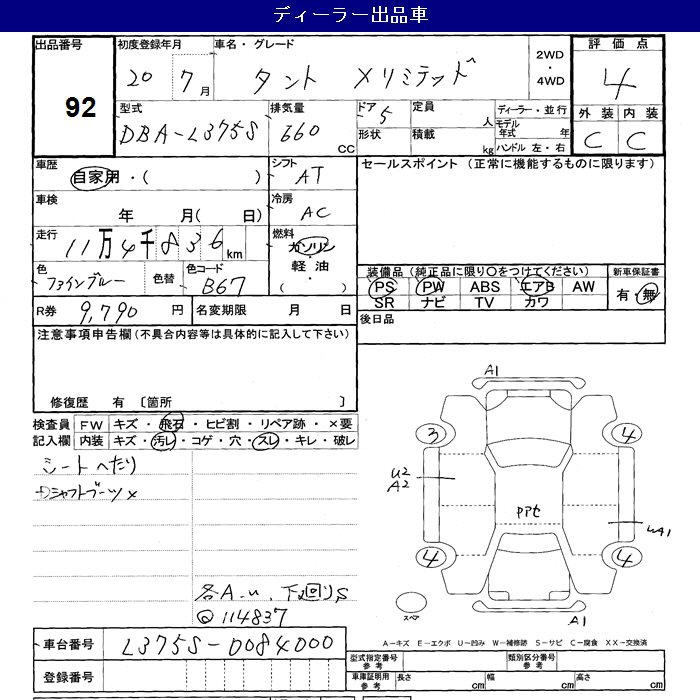 ディーラー出品車
出品番号 92
初度登録年月 20 7月
車名・グレード タント Xリミテッド
2WD・4WD
評価点 4
外装 内装
C C
型式 DBA-L375S
排気量 660 CC
ドア 5
形状
定員 人
積載 kg
ディーラー・並行
モデル年式 年
ハンドル 左・右
車歴 自家用・( )
シフト AT
セールスポイント (正常に機能するものに限ります)
車検 年 月( 日)
冷房 AC
走行 11万4千836km
燃料 ガソリン・軽油・( )
色 ファインブルー
色替
色コード B67
装備品 (純正品に限り○をつけてください)
PS PW ABS エアB AW
SR ナビ TV カワ
新車保証書
有・無
R券 9,790円
名変期限 月 日
後日品
注意事項申告欄(不具合内容等は具体的に記入して下さい)
修復歴 有 〔箇所 〕
検査員記入欄
FW キズ・飛石・ヒビ割・リペア跡・×要
内装 キズ・汚レ・コゲ・穴・スレ・キレ・破レ
シートへたり
Dシャフトブーツ×
各A.u、下廻りS
@ 114837
A1
3 4
U2
A2
PPセ
UA1
4 4
スペア
A1
A-キズ E-エクボ U-凹み W-補修跡 S-サビ C-腐食 XX-交換済
車台番号 L375S-0084000
登録番号
型式指定番号 参考
類別区分番号 参考
車庫証明用 参考 長さ cm 幅 cm 高さ cm